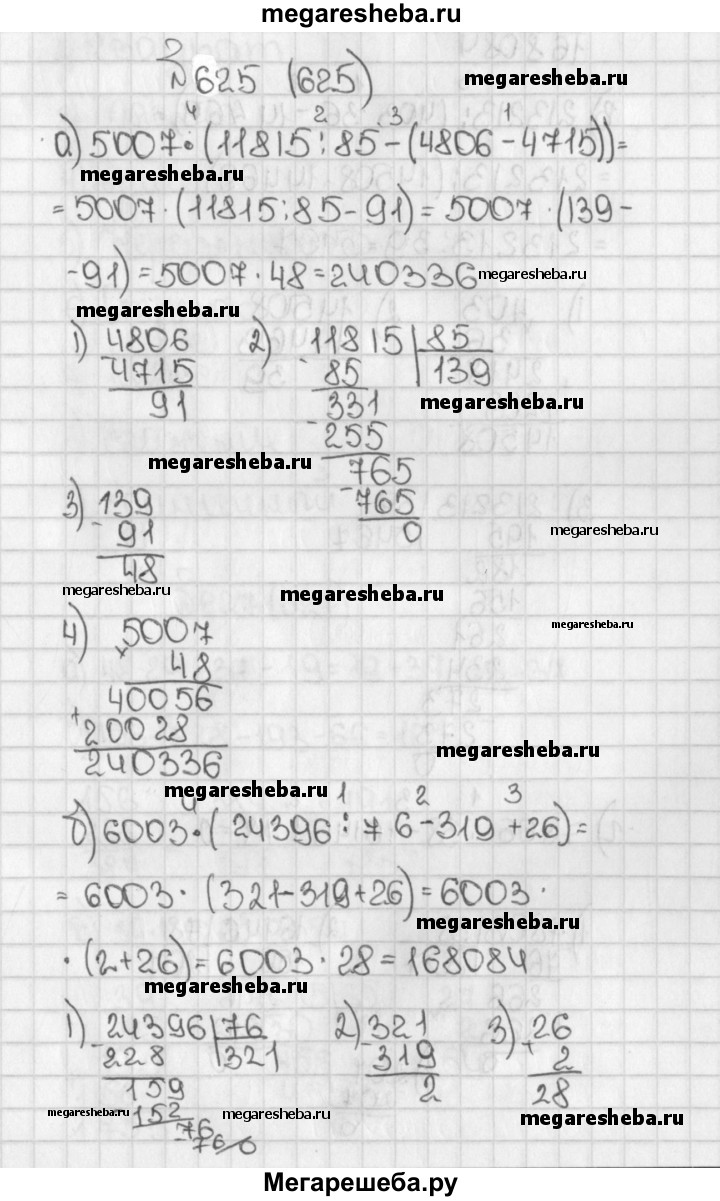 megaresheba.ru
№ 625 (625)
megaresheba.ru
4 2 3 1
а) 5007·(11815:85-(4806-4715))=
megaresheba.ru
=5007·(11815:85-91)=5007·(139-
-91)=5007·48=240336
megaresheba.ru
megaresheba.ru
1) 4806 2) 11815 85
- 4715 - 85 139
91 331
megaresheba.ru
- 255
megaresheba.ru
765
3) 139 - 765
- 91 0
megaresheba.ru
48
megaresheba.ru
megaresheba.ru
4) 5007
megaresheba.ru
× 48
40056
+ 20028
240336
megaresheba.ru
megaresheba.ru
4 1 2 3
б) 6003·(24396:76-319+26)=
=6003·(321-319+26)=6003·
megaresheba.ru
·(2+26)=6003·28=168084
megaresheba.ru
1) 24396 76 2) 321 3) 26
- 228 321 - 319 + 2
159 2 28
megaresheba.ru
152
megaresheba.ru
megaresheba.ru
76
- 76
0
Мегарешеба.ру